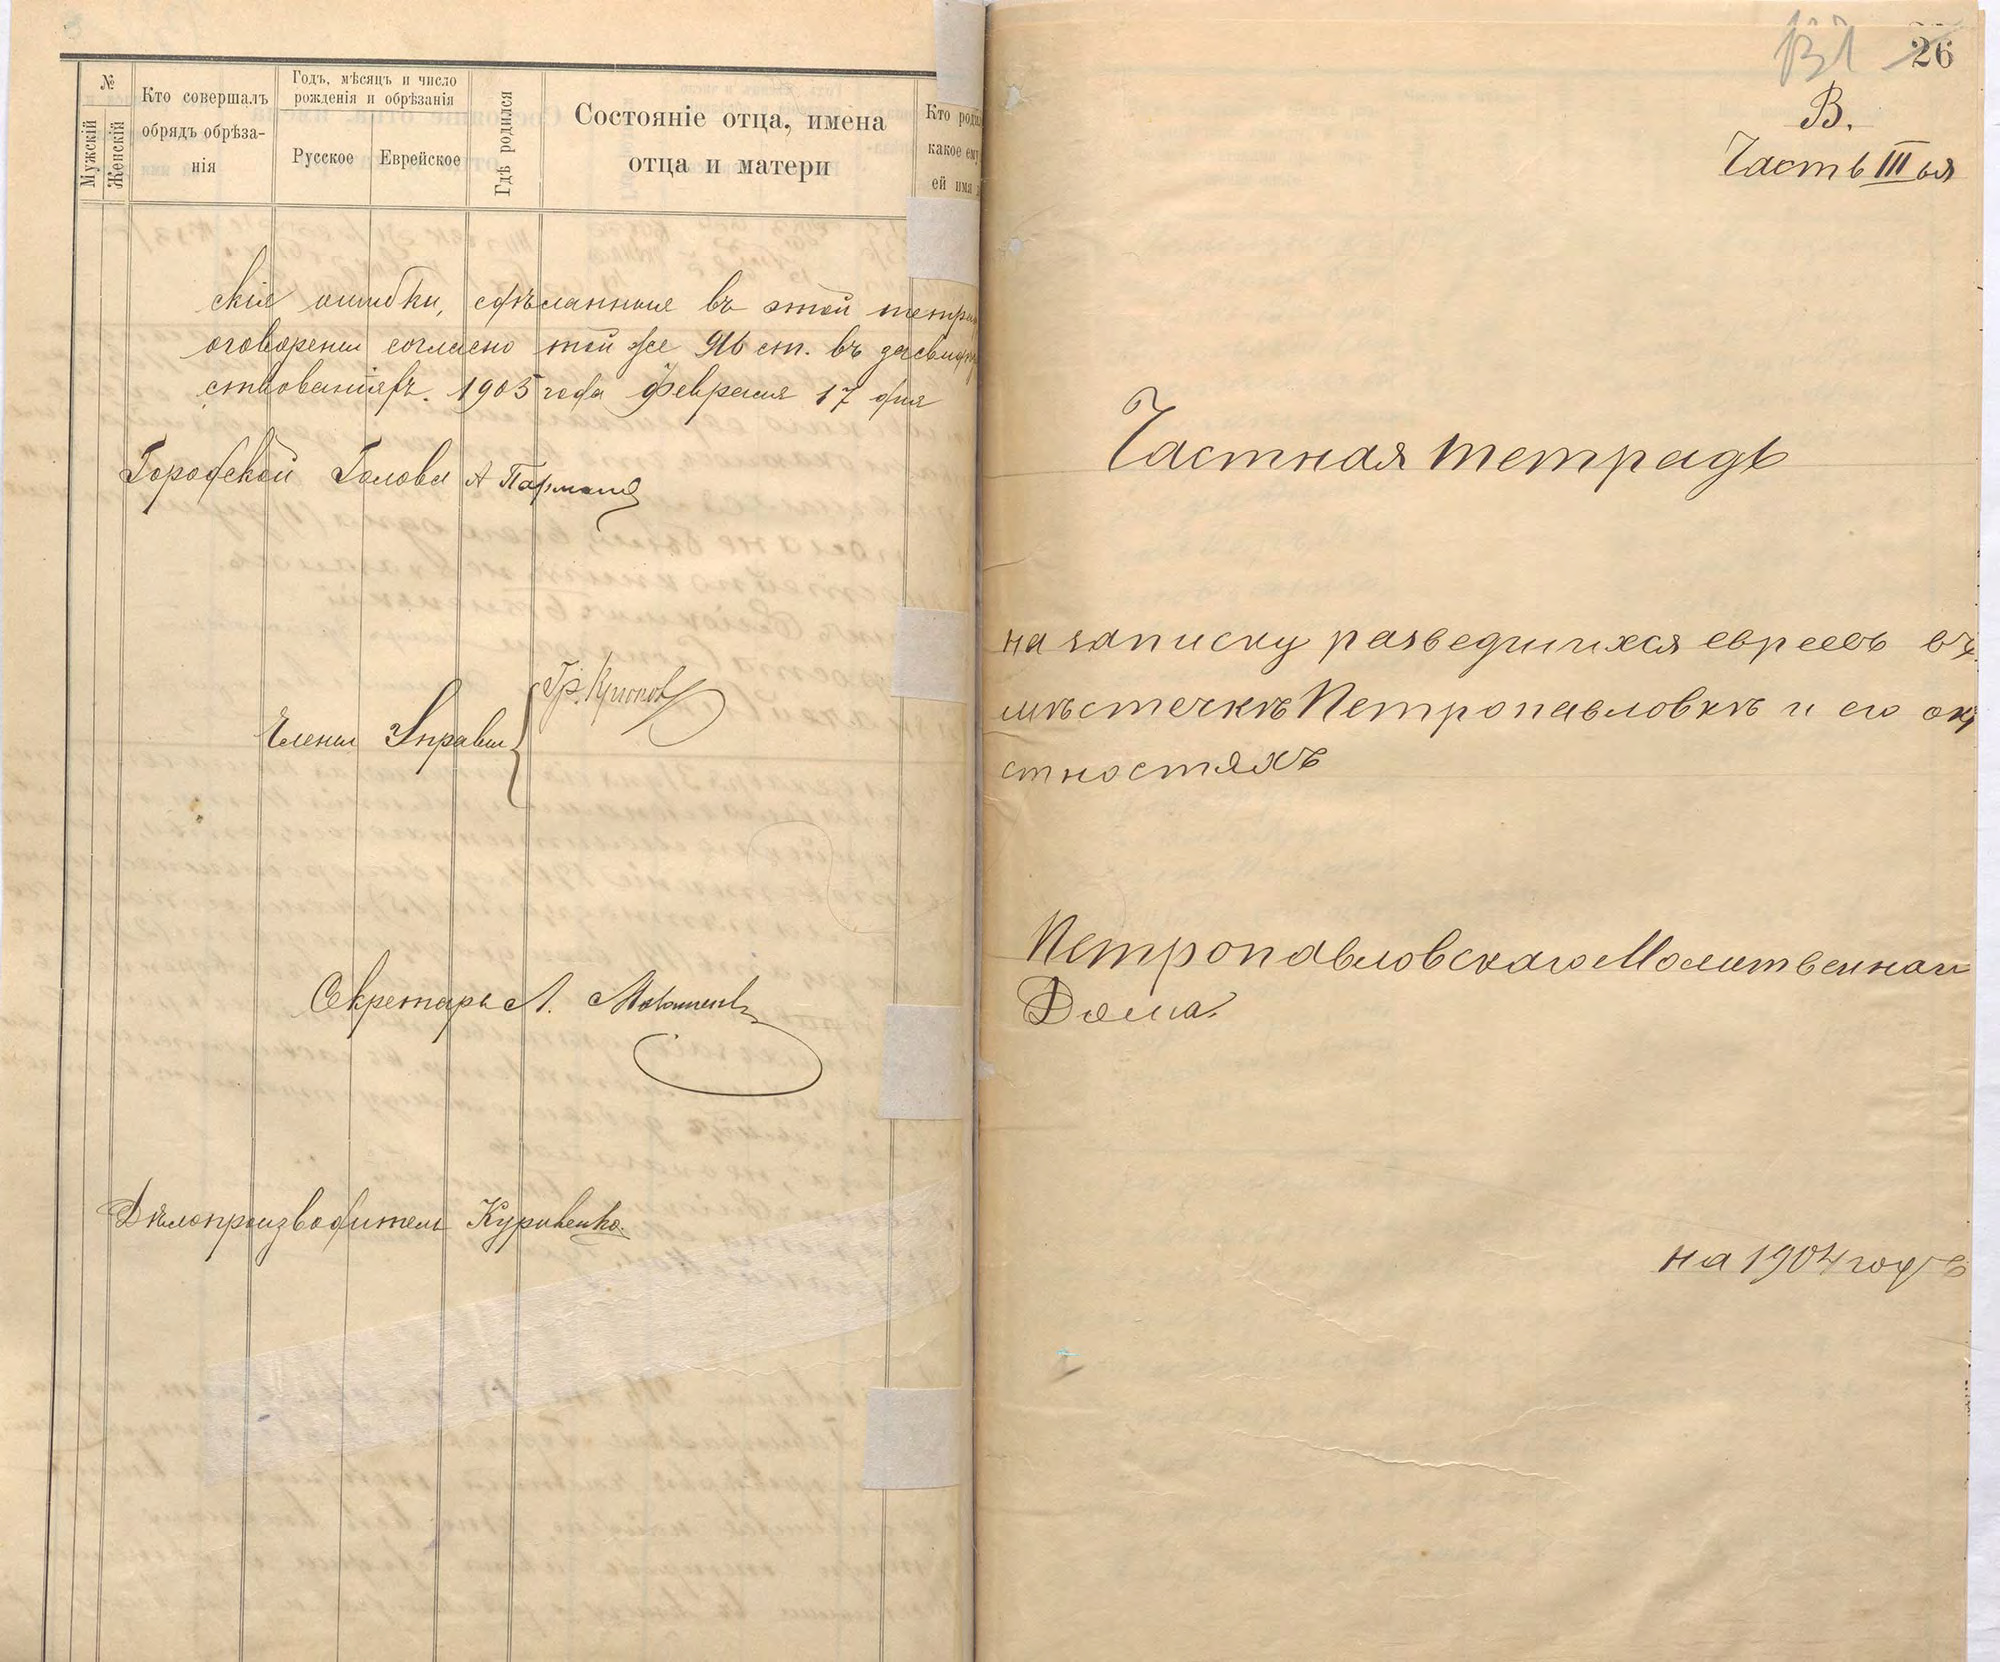 №
Мужскій
Женскій
Кто совершалъ
обрядъ обрѣза-
нія
Годъ, мѣсяцъ и число
рожденія и обрѣзанія
Русское
Еврейское
Гдѣ родился
Состояніе отца, имена
отца и матери
Кто роди
какое ему
ей имя
скія ошибки, сдѣланныя въ этой тетра
оговорены согласно той же 916 ст. въ засвидѣ
ствованіяхъ. 1905 года Февраля 17 дня
Городской Голова А
Члены Управы
Гр.
Секретарь Л.
Дѣлопроизводитель
131 26
В.
Часть III ья
Частная тетрадь
на записку разведшихся евреевъ въ
мѣстечкѣ Петропавловкѣ и его окр
стностяхъ
Петропавловскаго Молитвеннаг
Дома.
на 1904 годъ